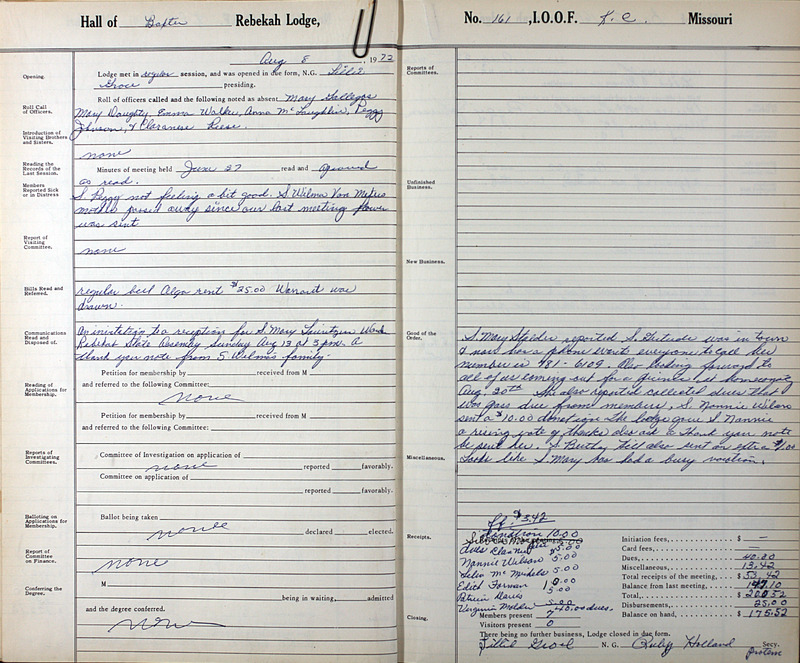 Hall of Baxter Rebekah Lodge,
Aug 8, 1972
Opening.
Lodge met in regular session, and was opened in due form, N.G. Tillie
Groce presiding.
Roll Call of Officers.
Roll of officers called and the following noted as absent Mary Gallegos
Mary Daughty, Emma Walker, Anna McLaughlin, Peggy
Johnson, & Claranese Reese.
Introduction of Visiting Brothers and Sisters.
none
Reading the Records of the Last Session.
Minutes of meeting held June 27 read and
as read.
Members Reported Sick or in Distress
S. Peggy not feeling a bit good. S. Wilma Van Meters
mother passed away since our last meeting flower
was sent
Report of Visiting Committee.
none
Bills Read and Referred.
regular bill rent $25.00 Warrant was
drawn.
Communications Read and Disposed of.
An invitation to a reception for S. Mary
Rebekah State Sunday Aug 13 at 3 pm. A
thank you note from S. Wilma's family.
Reading of Applications for Membership.
Petition for membership by received from M
and referred to the following Committee:
none
Petition for membership by received from M
and referred to the following Committee:
Reports of Investigating Committees.
Committee of Investigation on application of
none reported favorably.
Committee on application of
reported favorably.
Balloting on Applications for Membership.
Ballot being taken
none declared elected.
Report of Committee on Finance.
none
Conferring the Degree.
M
being in waiting, admitted
and the degree conferred.
none
No. 161, I.O.O.F. K.C. Missouri
Reports of Committees.
Unfinished Business.
New Business.
Good of the Order.
S. Mary reported S. Gertrude was in town
& now has a phone want everyone to call her
number is 481-6109. Also looking forward to
all of us coming out for a picnic at
Aug. 20th. She also reported collected dues that
was pass due from members, S. Nannie Wilson
sent a $10.00 donation the lodge gave S. Nannie
a rising vote of thanks also ask a thank you note
be sent her. S. also sent an extra $1.00
looks like S. Mary has had a busy vacation.
Miscellaneous.
$3.42
Receipts.
donation 10.00
Dues
Nannie Wilson 5.00
5.00
Edith
5.00
Virginia 5.00
40.00 dues.
Initiation fees, $ —
Card fees,
Dues, 40.00
Miscellaneous, 13.42
Total receipts of the meeting, $ 53.42
Balance from last meeting, 147.10
Total, $ 200.52
Disbursements, 25.00
Balance on hand, $ 175.52
Closing.
Members present 7
Visitors present 0
There being no further business, Lodge closed in due form.
Tillie Groce N. G. Ruby Holland Secy.
protem